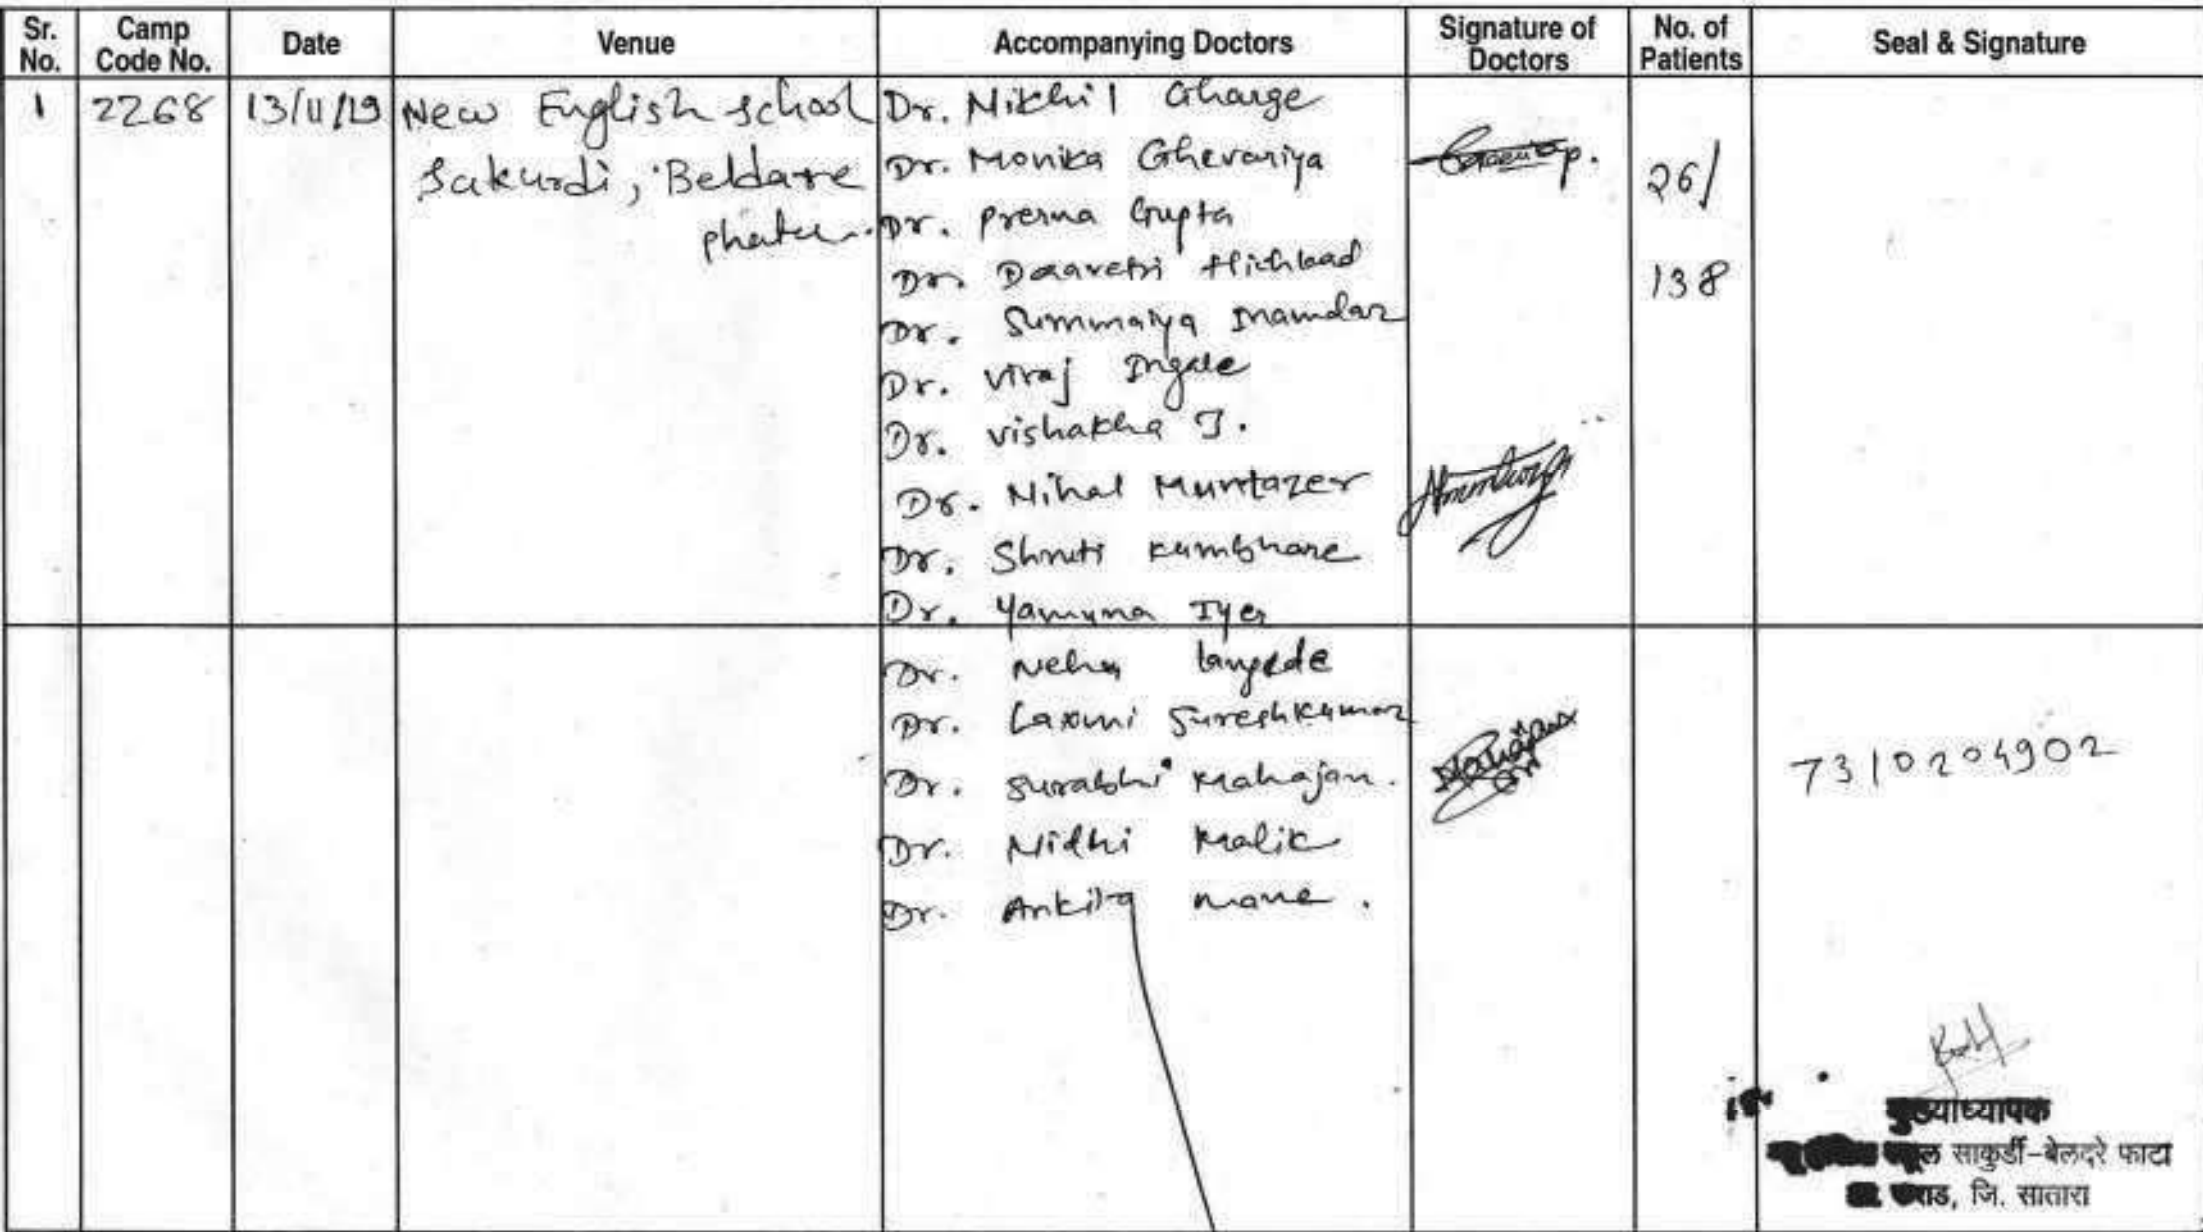 Sr. No. Camp Code No. Date Venue Accompanying Doctors Signature of Doctors No. of Patients Seal & Signature
1 2268 13/11/19 New English school Dr. Nikhil Gharge
Sakurdi, Beldare Dr. Monika Ghevariya 26/
phata. Dr. Prerna Gupta
Dr. 138
Dr. Summaiya Inamdar
Dr. Viraj Ingale
Dr. Vishakha J.
Dr. Nihal Muntazer
Dr. Shruti Kumbhare
Dr. Yamuna Iyer
Dr. Neha
Dr. Laxmi Sureshkumar
Dr. Surabhi Mahajan. 7310204902
Dr. Nidhi Malik
Dr. Ankita Mane.
मुख्याध्यापक
स्कूल साकुर्डी-बेलदरे फाटा
कराड, जि. सातारा